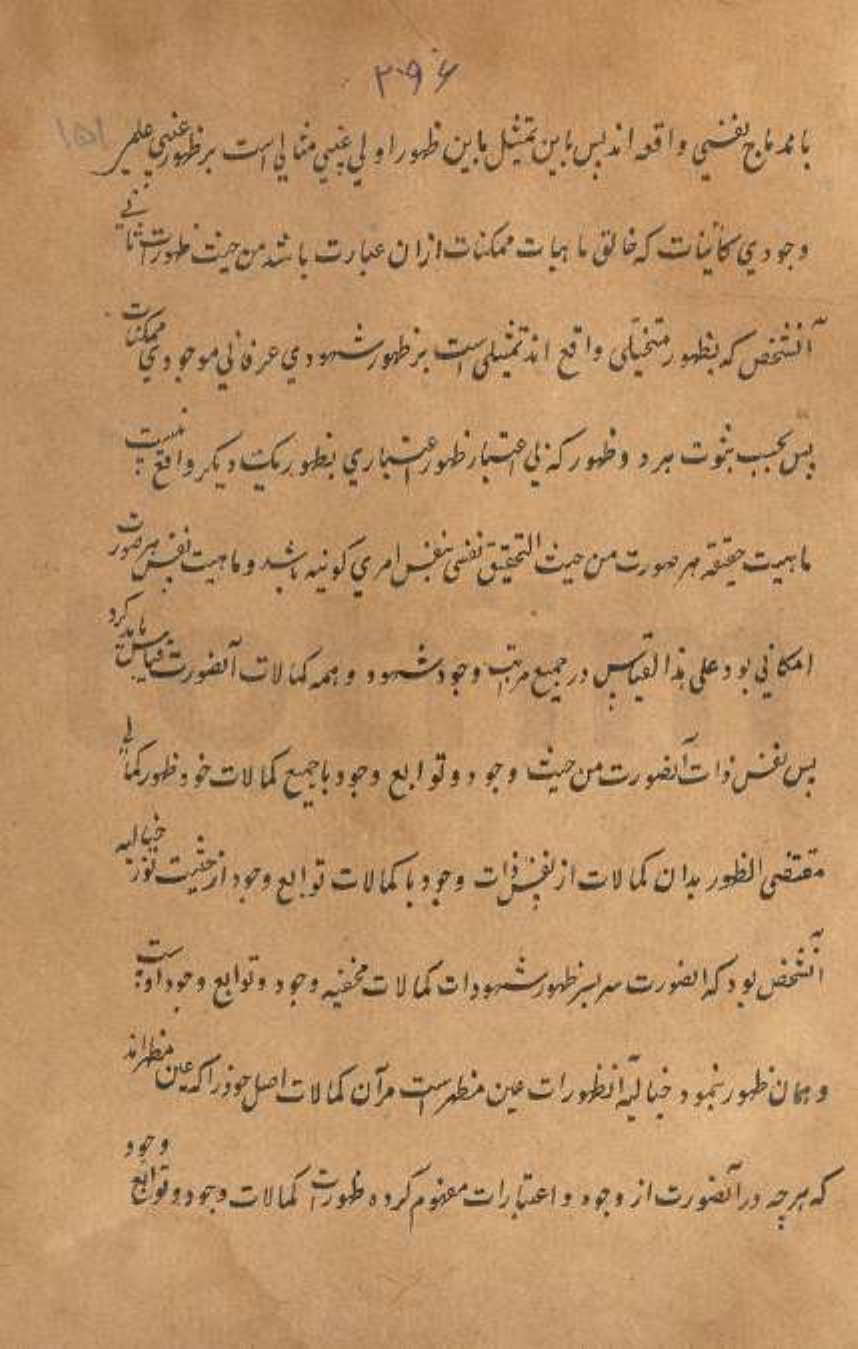 ۲۰۹۶
۱۵۱
باندماج نفسی واقعه اند پس باین تمثیل باین ظهور اولی غیبی مثالی است بر ظهور غیبی علمی
وجودی کاینات که خالق ماهیات ممکنات ازان عبارت باشد من حیث ظهورات ثانی
آنشخص که بظهور متخیلی واقع اند تمثیلی است بر ظهور شهودی عرفانی موجودی ممکنات
پس بحسب ثبوت هر دو ظهور که بی اعتبار ظهور اعتباری بظهور یک دیگر واقع نیست
ماهیت حقیقه هر صورت من حیث التحقیق نفسی بنفس امری کونیه باشد و ماهیت نفس هر صورت
امکانی بود علی هذا القیاس در جمیع مراتب وجود شهود و همه کمالات آنصورت قیاس باید کرد
پس نفس ذات آنصورت من حیث وجود و توابع وجود با جمیع کمالات خود ظهور کمالی
مقتضی الظهور بدان کمالات از نفس ذات وجود با کمالات توابع وجود از حیثیت نور خیالیه
آنشخص بود که انصورت سراسر ظهور شهودات کمالات مخفیه وجود و توابع وجود اوست
و همان ظهور بنمود خیالیه آنظهورات عین مظهر است مرآن کمالات اصل خود را که عین مظهراند
که هرچه در آنصورت از وجود و اعتبارات مفهوم کرده ظهورات کمالات وجود و توابع وجود